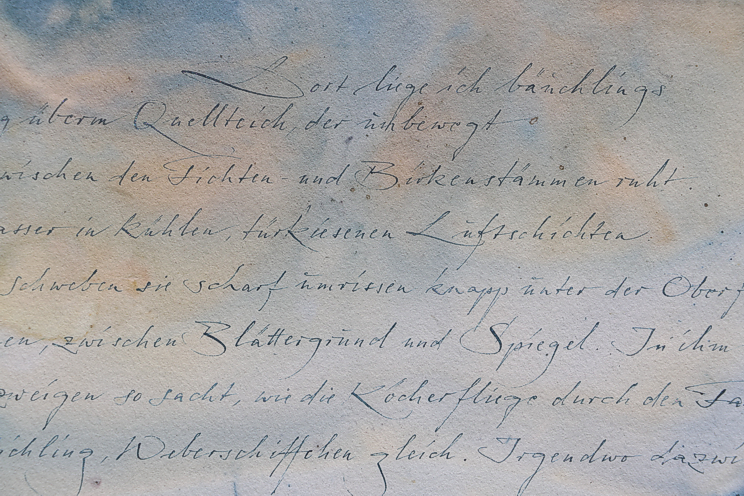 Dort liege ich bäuchlings
g überm Quellteich, der unbewegt
wischen den Fichten- und Birkenstämmen ruht.
asser in kühlen, türkiesenen Luftschichten
schweben sie scharf umrissen knapp unter der Oberf
en, zwischen Blättergrund und Spiegel. In ihm
zweigen so sacht, wie die Köcherfliege durch den Ta
ichling, Weberschiffchen gleich. Irgendwo dazwi